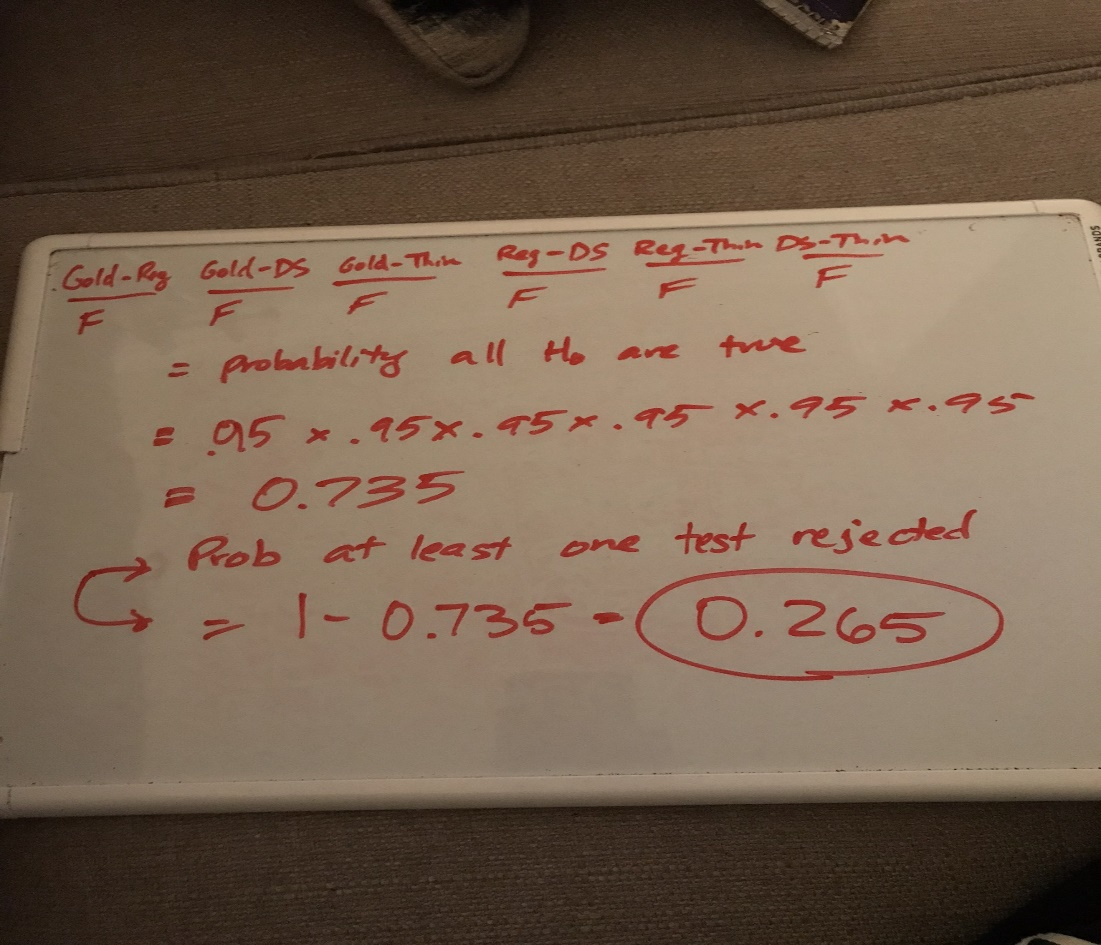 Gold-Reg Gold-DS Gold-Thin Reg-DS Reg-Thin DS-Thin
F F F F F F
= probability all H₀ are true
= .95 x .95 x .95 x .95 x .95 x .95
= 0.735
Prob at least one test rejected
= 1 - 0.735 = 0.265